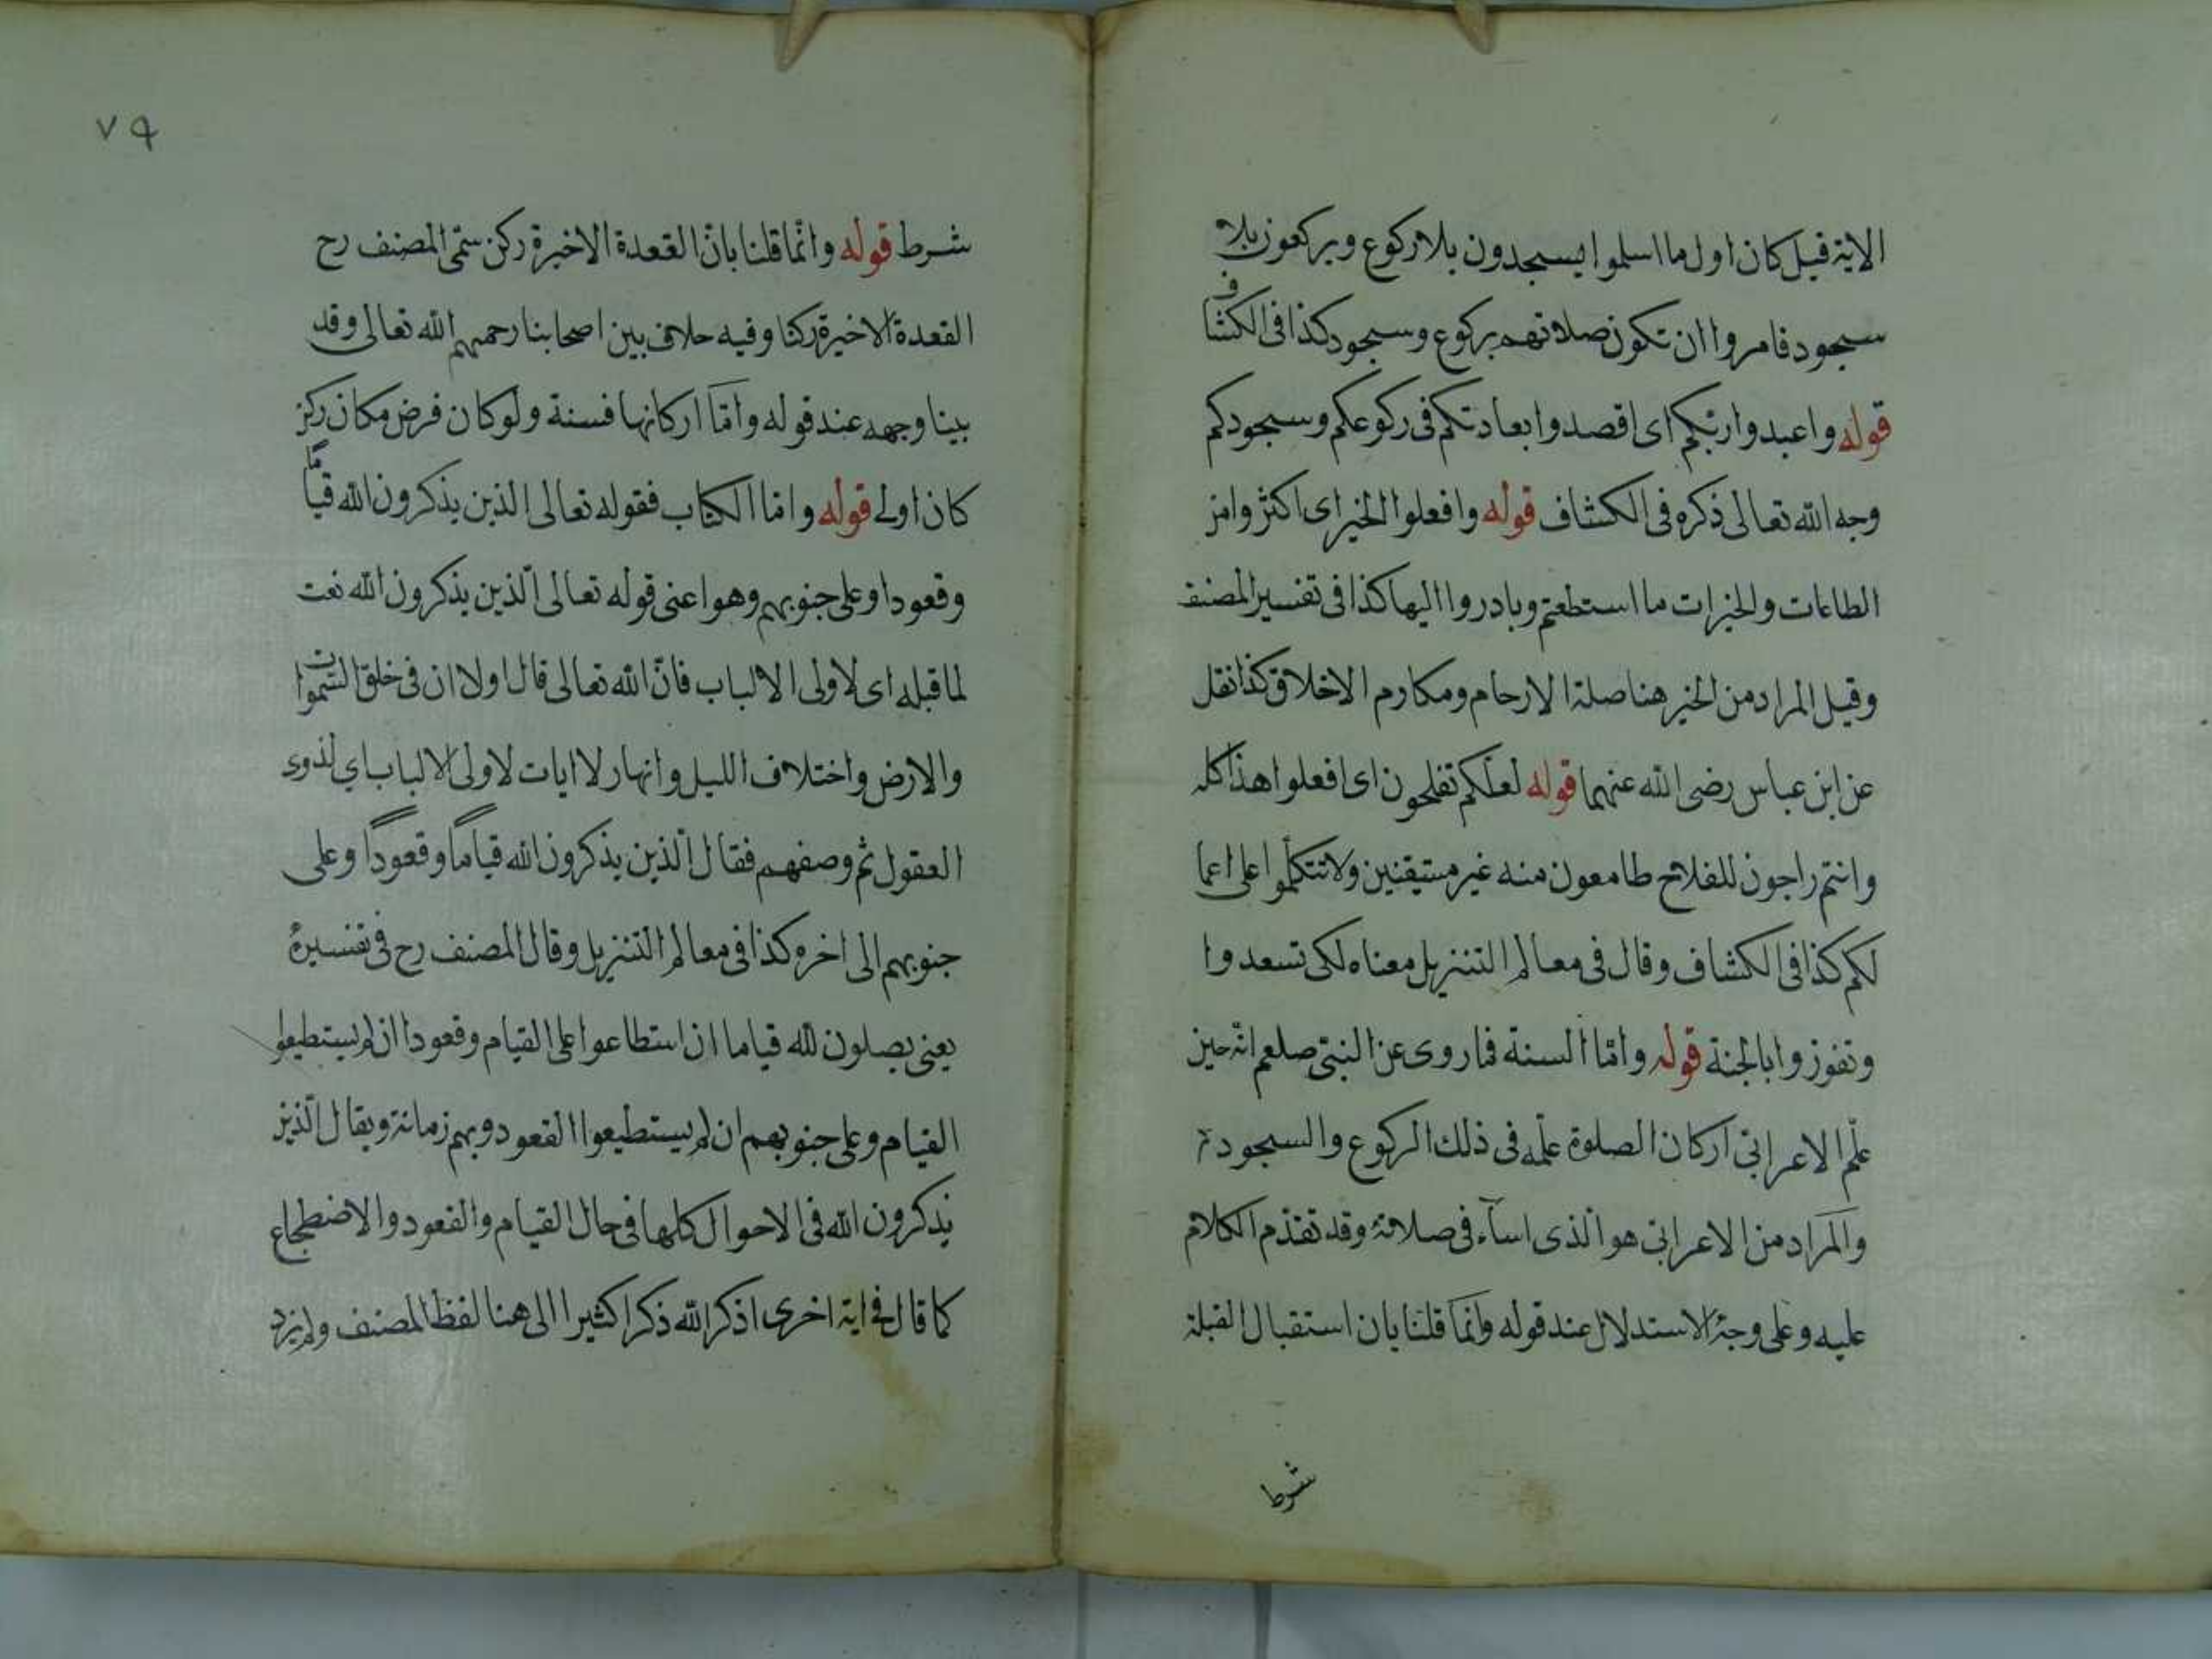 الاية قيل كان اول ما اسلموا يسجدون بلا ركوع ويركعون بلا
سجود فامروا ان تكون صلاتهم بركوع وسجود كذا في الكشاف
قوله واعبدوا ربكم اى اقصدوا بعبادتكم في ركوعكم وسجودكم
وجه الله تعالى ذكره في الكشاف قوله وافعلوا الخير اى اكثروا من
الطاعات والخيرات ما استطعتم وبادروا اليها كذا في تفسير المصنف
وقيل المراد من الخير هنا صلة الارحام ومكارم الاخلاق كذا نقل
عن ابن عباس رضى الله عنهما قوله لعلكم تفلحون اى افعلوا هذا كله
وانتم راجون للفلاح طامعون منه غير مستيقنين ولا تتكلموا على اعما
لكم كذا في الكشاف وقال في معالم التنزيل معناه لكى تسعدوا
وتفوزوا بالجنة قوله وامّا السنة فما روى عن النبىّ صلعم انّه حين
علّم الاعرابىّ اركان الصلوة علّمه في ذلك الركوع والسجود
والمراد من الاعرابىّ هو الّذى اساء في صلاته وقد تقدّم الكلام
عليه وعلى وجه الاستدلال عند قوله وانّما قلنا بان استقبال القبلة
شرط
٧٩
شرط قوله وانّما قلنا بانّ القعدة الاخيرة ركن سمّى المصنف رح
القعدة الاخيرة ركنا وفيه خلاف بين اصحابنا رحمهم الله تعالى وقد
بينا وجهه عند قوله وامّا اركانها فستة ولو كان فرض مكان ركن
كان اولى قوله وامّا الكتاب فقوله تعالى الذين يذكرون الله قياماً
وقعودا وعلى جنوبهم وهو اعنى قوله تعالى الّذين يذكرون الله نعت
لما قبله اى لاولى الالباب فانّ الله تعالى قال اولا ان في خلق السّموات
والارض واختلاف الليل وانهار لاايات لاولى الالباب اي لذوى
العقول ثم وصفهم فقال الّذين يذكرون الله قياماً وقعوداً وعلى
جنوبهم الى اخره كذا في معالم التنزيل وقال المصنف رح في تفسيره
يعنى يصلون لله قياما ان استطاعوا على القيام وقعودا ان لم يستطيعوا
القيام وعلى جنوبهم ان لم يستطيعوا القعود وبهم زمانة ويقال الّذين
يذكرون الله في الاحوال كلها في حال القيام والقعود والاضطجاع
كما قال في اية اخرى اذكر الله ذكرا كثيرا الى هنا لفظ المصنف ولم يزد